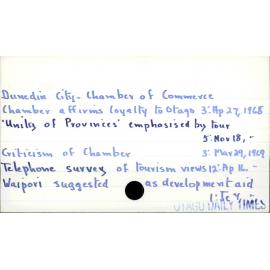 Dunedin City - Chamber of Commerce
Chamber affirms loyalty to Otago 3: Ap 27, 1968
'Unity of Provinces' emphasised by tour
5: Nov 18, -
Criticism of Chamber 3: Mar 29, 1969
Telephone survey of tourism views 12: Ap 16, -
Waipori suggested as development aid
OTAGO DAILY TIMES